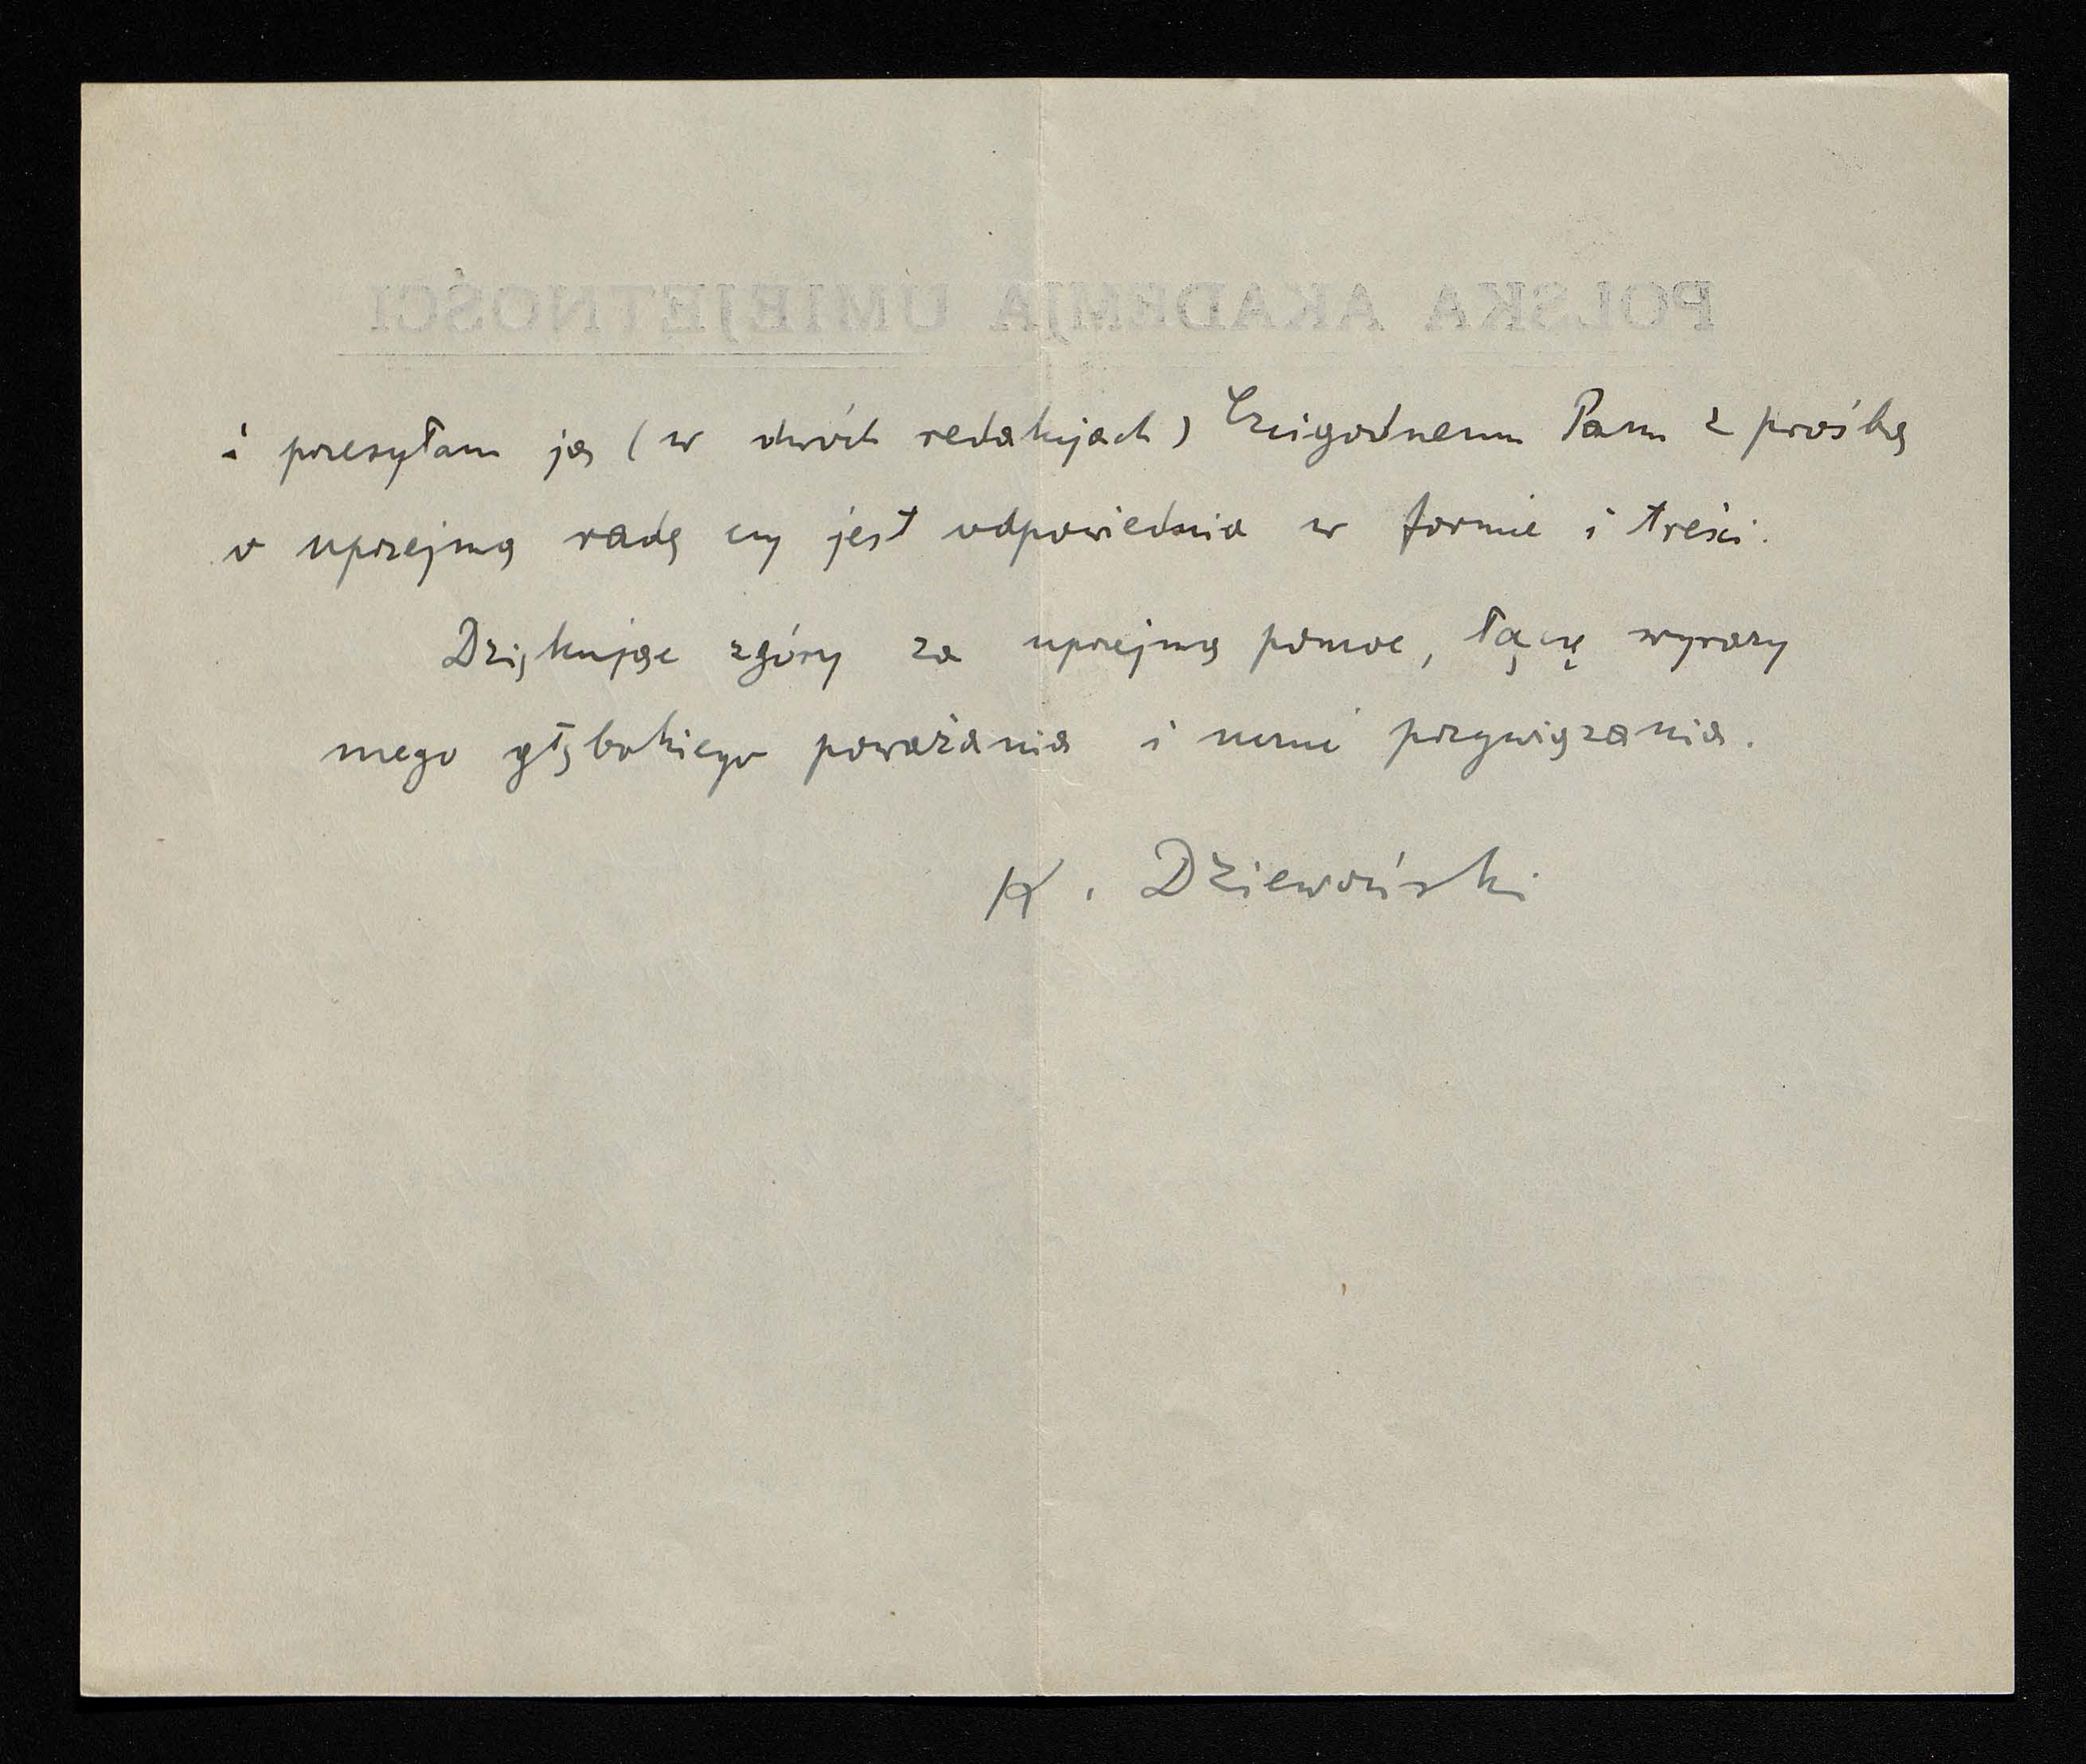 POLSKA AKADEMJA UMIEJĘTNOŚCI
i przesyłam ją (w dwóch redakcjach) Czcigodnemu Panu z prośbą
o uprzejmą radę czy jest odpowiednia w formie i treści.
Dziękując zgóry za uprzejmą pomoc, łączę wyrazy
mego głębokiego poważania i przywiązania.
K. Dziewoński